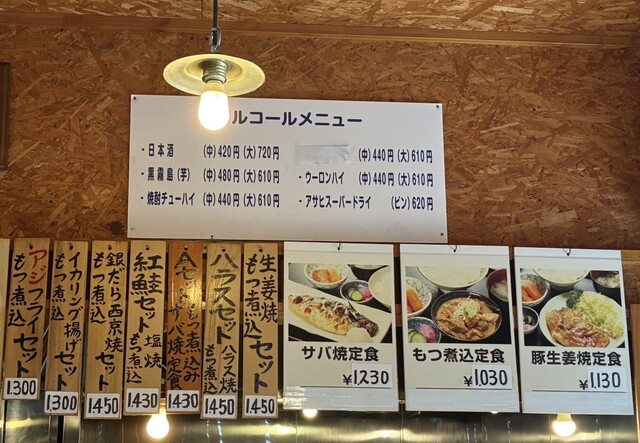 ルコールメニュー
・日本酒 (中)420円(大)720円
(中)440円(大)610円
・黒霧島(芋) (中)480円(大)610円
・ウーロンハイ (中)440円(大)610円
・焼酎チューハイ (中)440円(大)610円
・アサヒスーパードライ (ビン)620円
アジフライセット
もつ煮込
1300
イカリング揚げセット
もつ煮込
1300
銀だら西京焼セット
もつ煮込
1450
紅鮭セット 塩焼
もつ煮込
1430
セット もつ煮込み
サバ焼定食
1430
ハラスセット ハラス焼
もつ煮込
1450
生姜焼セット
もつ煮込
1450
サバ焼定食
¥1230
もつ煮込定食
¥1,030
豚生姜焼定食
¥1,130